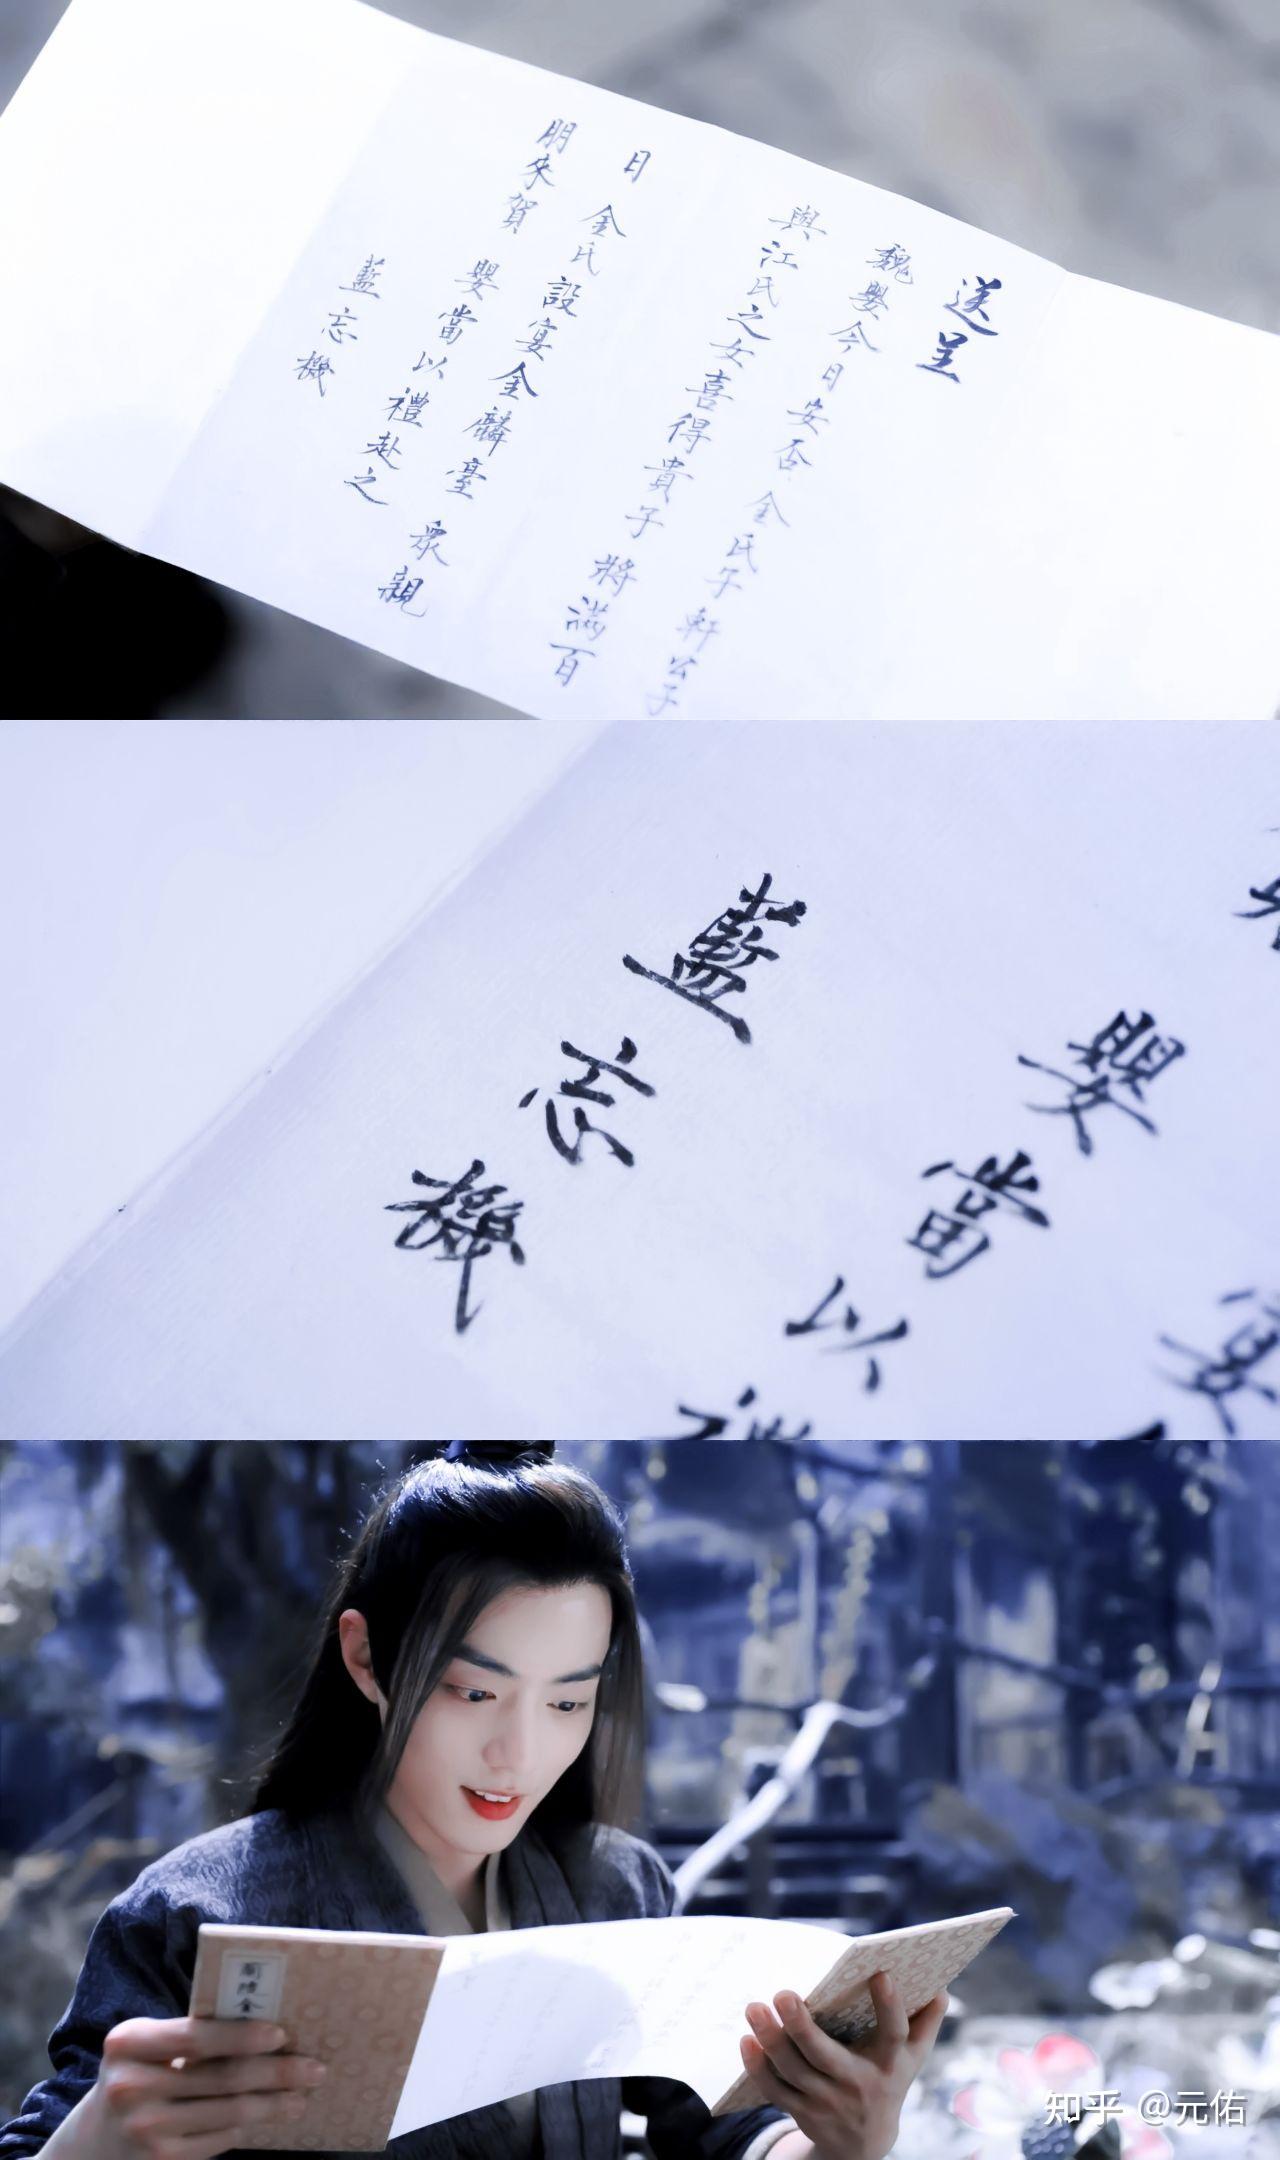 送呈
魏嬰今日安否 金氏子軒公子
與江氏之女喜得貴子 將滿百
日 金氏設宴金麟臺 衆親
朋來賀 嬰當以禮赴之
藍忘機
藍忘機
嬰當以禮
宴
蘭陵金
知乎 @元佑